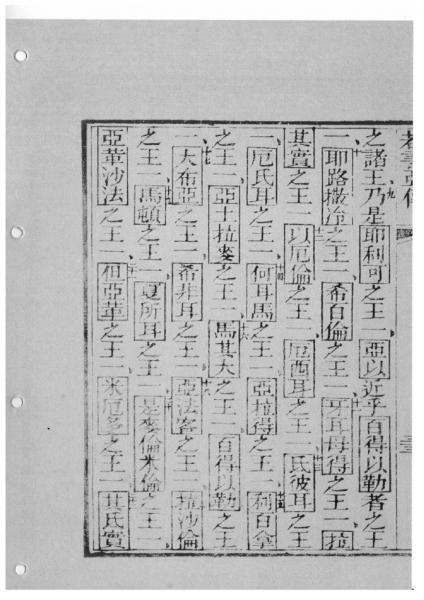 之諸王乃是九耶利可之王一、亞以近乎百得以勒者之王
一、耶路撒冷之王一、希百倫之王一、十一牙耳母得之王一、拉
其實之王一、十二以厄倫之王一、厄西耳之王一、十三氏彼耳之王
一、厄氏耳之王一、十四何耳馬之王一、亞拉得之王一、十五利百拿
之王一、亞土拉麥之王一、十六馬其大之王一、百得以勒之王
一、十七大布亞之王一、希非耳之王一、十八亞法客之王一、拉沙倫
之王一、十九馬頓之王一、夏所耳之王一、二十是麥倫米倫之王一
亞革沙法之王一、亞革之王一、米厄多之王一、其氏實